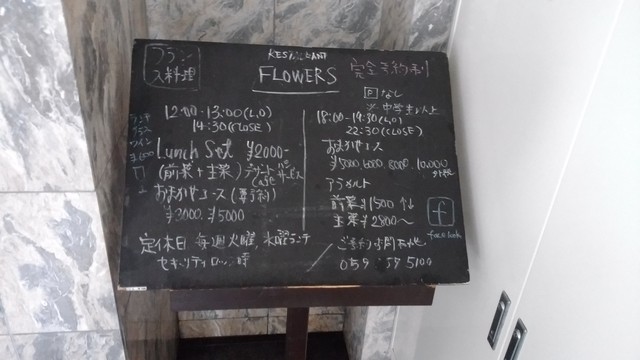 フランス料理
RESTAURANT
FLOWERS
完全予約制
12:00-13:00(L,O)
14:30(CLOSE)
ランチ
グラス
ワイン
Lunch Set ¥2000-
(前菜+主菜) デザート
Cafe サービス
おまかせコース(要予約)
¥3000. ¥5000
定休日 毎週火曜, 水曜ランチ
セキュリティロック時
なし
※中学生以上
18:00-19:30(L,O)
22:30(CLOSE)
おまかせコース
¥5000. 6000. 8000. 10,000
アラカルト
前菜 ¥1500
主菜 ¥2800〜
f
facebook
ご予約・お問い合わせ
059
5104